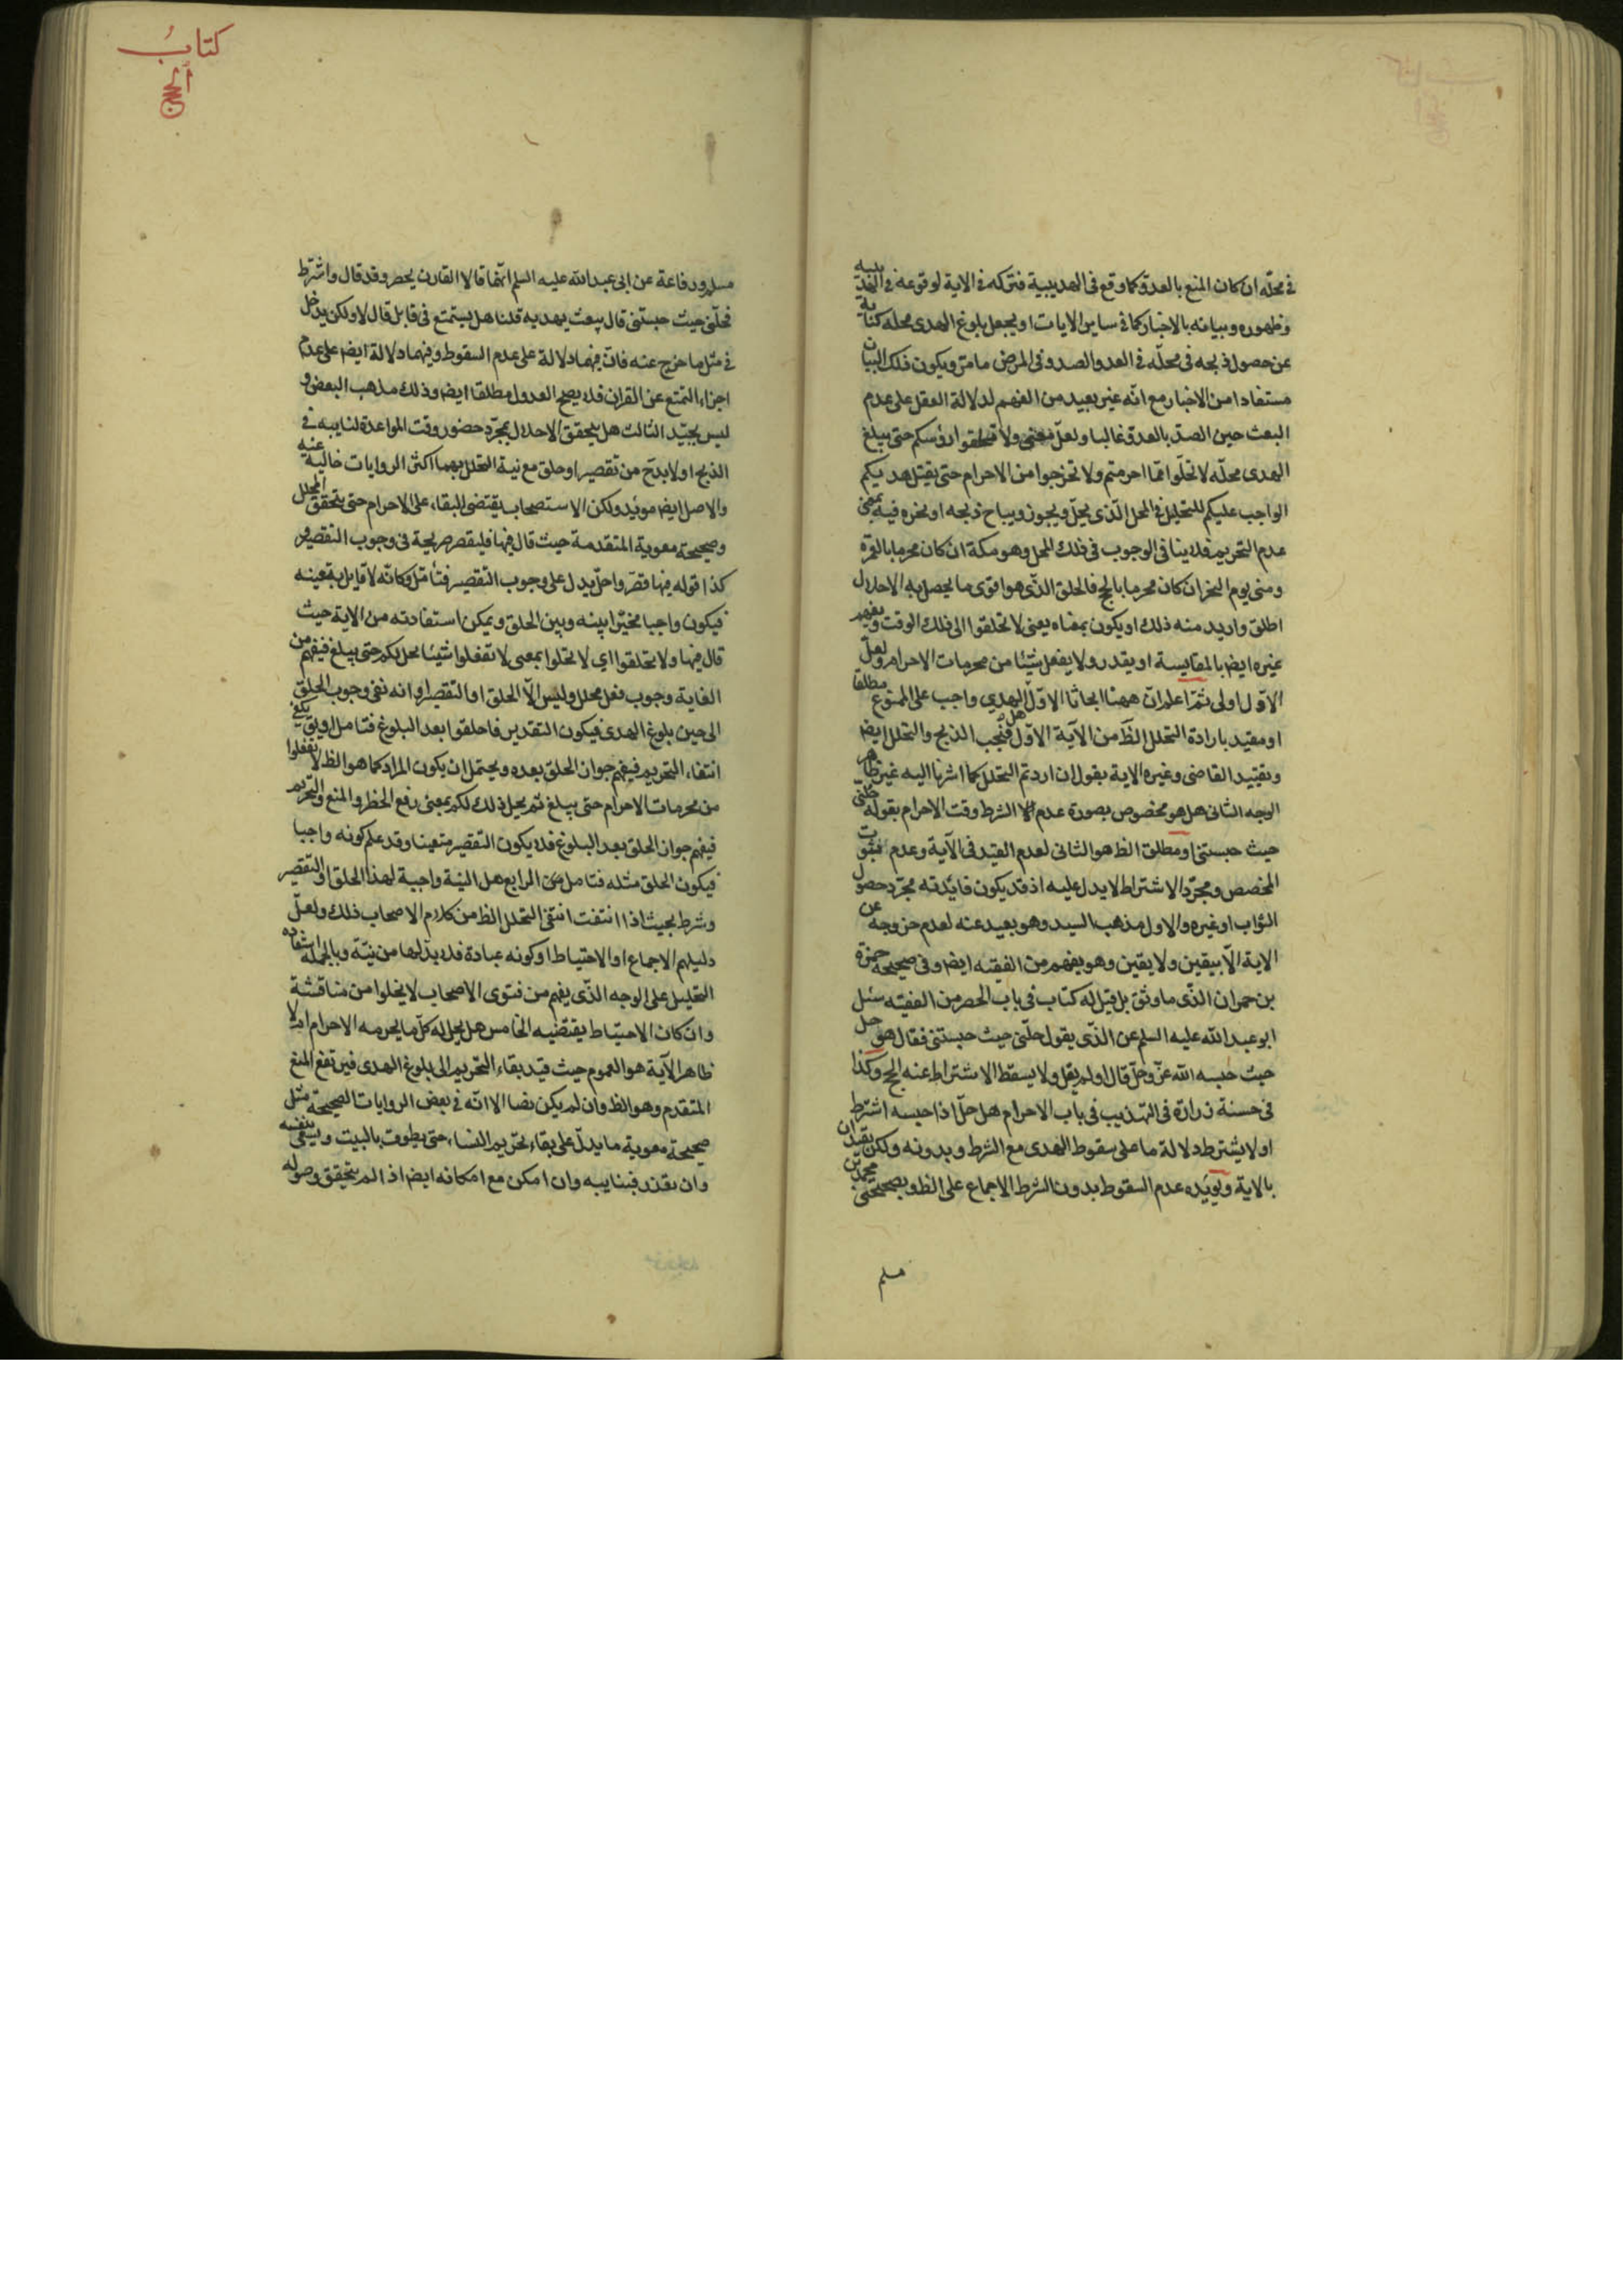 في محلّه ان كان المنع بالعدوّ كما وقع في الحديبية فتركه في الاية لوقوعه في الحديبيه
وظهوره وبيانه بالاخبار كما في ساير الايات او يجعل بلوغ الهدى محله كناية
عن حصول ذبحه في محلّه في العدو الصد وفي المرض ما مرّ ويكون ذلك البيان
مستفادا من الاخبار مع انّه غير بعيد من الفهم لدلالة العقل على عدم
البعث حين الصدّ بالعدوّ غالبا ولعلّ معنى ولا تحلقوا رؤسكم حتى يبلغ
الهدى محلّه لا تحلّوا ممّا احرمتم ولا تخرجوا من الاحرام حتى يقتل هديكم
الواجب عليكم للتحليل في المحل الّذى يحلّ ويجوز ويباح ذبحه او نحره فيه بمعنى
عدم التحريم فلا ينافى الوجوب في ذلك المحل وهو مكة ان كان محرما بالعمرة
ومنى يوم النحر ان كان محرما بالحج فالحلق الّذى هو اقوى ما يحصل به الاحلال
اطلق واريد منه ذلك او يكون بمعناه يعنى لا تحلقوا الى ذلك الوقت ويفهم
غيره ايضا بالمقايسة او يقدر ولا يفعل شيئا من محرمات الاحرام ولعلّ
الاوّل اولى ثمّ اعلم انّ ههنا ابحاثا الاوّل الهدي واجب على الممنوع مطلقا
او مقيد بارادة التحلل الظ من الآية الاوّل فيجب الذبح والتحلل ايضا
وتقييد القاضى وغيره الاية بقول ان اردتم التحلل كما اشرنا اليه غير ظاهر
الوجه الثانى هل هو مخصوص بصورة عدم الشرط وقت الاحرام بقوله حلّنى
حيث حبستنى او مطلق الظ هو الثانى لعدم القيد في الآية وعدم ثبوت
المخصص ومجرّد الاشتراط لا يدل عليه اذ قد يكون فايدته مجرّد حصول
الثواب او غيره والاول مذهب السيد وهو بعيد عنه لعدم خروجه عن
الاية الاّ بيقين ولا يقين وهو يفهم من الفقيه ايضا وفى صحيحة حمزة
بن حمران الذّى ما وثق بل قيل له كتاب في باب الحصر من الفقيه سئل
ابو عبد الله عليه السلم عن الذّى يقول حلّنى حيث حبستنى فقال هو حل
حيث حبسه الله عزّ وجلّ قال او لم يقل ولا يسقط الاشتراط عنه الحج وكذا
في حسنة زرارة في التهذيب في باب الاحرام هل حلّ اذا حبسه اشترط
او لا يشترط دلالة ما على سقوط الهدى مع الشرط وبدونه ولكن يقيدان
بالاية ويؤيده عدم السقوط بدون الشرط الاجماع على الظ وبصحيحتى محمد بن
مسلم
كتابُ
الحج
مسلم ورفاعة عن ابى عبد الله عليه السلم انّهما قالا القارن يحصر وقد قال واشترط
فحلّنى حيث حبستنى قال يبعث بهديه قلنا هل يستمتع في قابل قال لا ولكن يدخل
في مثل ما خرج عنه فانّ فيهما دلالة على عدم السقوط وفيهما دلالة ايضا على عدم
اجزاء التمتع عن القران فلا يصح العدول مطلقا ايضا وذلك مذهب البعض و
ليس بجيّد الثالث هل يتحقق الاحلال بمجرّد حضور وقت المواعدة لنايبه في
الذبح او لا بدّ ح من تقصير او حلق مع نية التحلل بهما اكثر الروايات خالية عنه
والاصل ايضا مويد ولكن الاستصحاب يقتضى البقاء على الاحرام حتى يتحقق المحلل
وصحيحة معوية المتقدمة حيث قال فيها فليقصر صريحة في وجوب التقصير و
كذا قوله فيها قصّر واحلّ يدل على وجوب التقصير فتأمّل وكانّه لا قايل بتعينه
فيكون واجبا مخيّرا بينه وبين الحلق ويمكن استفادته من الاية حيث
قال فيها ولا تحلقوا اي لا تحلوا بمعنى لا تفعلوا شيئا محل بكم حتى يبلغ فيفهم من
الغاية وجوب فعل محلل وليس الاّ الحلق او التقصير او انه نفى وجوب الحلق
الى حين بلوغ الهدى فيكون التقدير فاحلقوا بعد البلوغ فتامل او يبق يكفى
انتفاء التحريم فيفهم جواز الحلق بعده ويحتمل ان يكون المراد كما هو الظ لا تفعلوا
من محرمات الاحرام حتى يبلغ ثم يحل ذلك لكم بمعنى رفع الحظر والمنع والتحريم
فيفهم جواز الحلق بعد البلوغ فلا يكون التقصير متعينا وقد علم كونه واجبا
فيكون الحلق مثله فتامل الرابع هل النية واجبة لهذا الحلق او التقصير
وشرط بحيث اذا انتفت انتفى التحلل الظ من كلام الاصحاب ذلك ولعلّ
دليلهم الاجماع او الاحتياط او كونه عبادة فلا بدّ لها من نيّة وبالجملة استفادة
التحليل على الوجه الذّى يفهم من فتوى الاصحاب لا يخلوا من مناقشة
وان كان الاحتياط يقتضيه الخامس هل يحل له كلّ ما يحرمه الاحرام ام لا
ظاهر الآية هو العموم حيث قيد بقاء التحريم الى بلوغ الهدى فيرتفع المنع
المتقدم وهو الظ وان لم يكن نصا الا انّه في بعض الروايات الصحيحة مثل
صحيحة معوية ما يدلّ على بقاء تحريم النساء حتى يطوف بالبيت ويسعى بنفسه
وان تعذر فبنايبه وان امكن مع امكانه ايضا اذ الم يتحقق وصوله